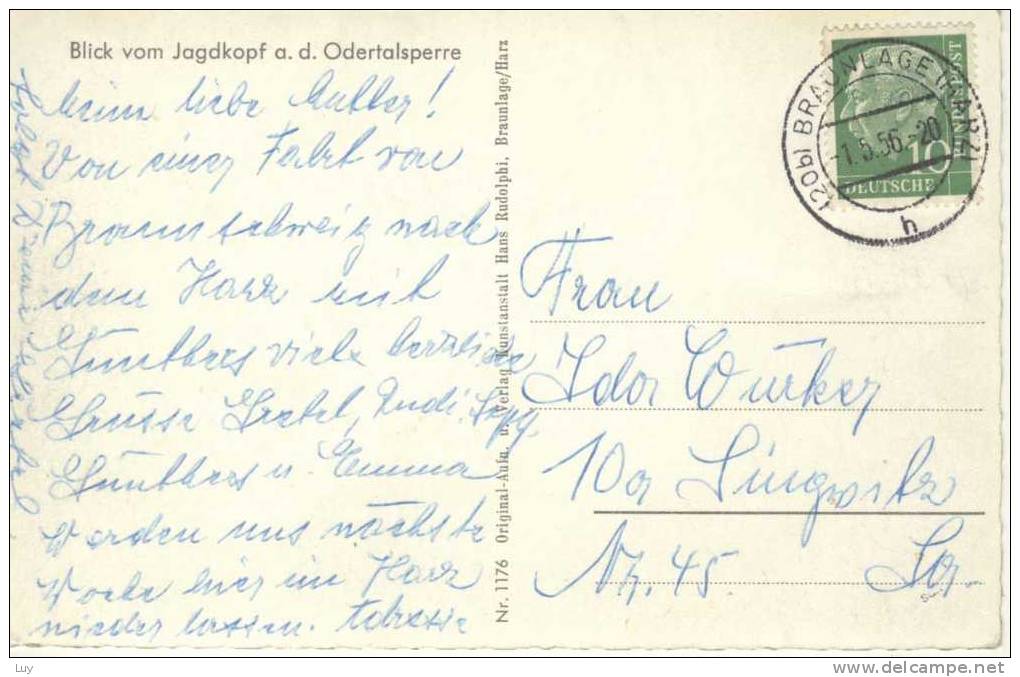 Blick vom Jagdkopf a. d. Odertalsperre
Meine liebe Mutter!
Von einer Fahrt von
Braunschweig nach
dem Harz mit
Günthers viele herzliche
Grüsse Gretel, Rudi.
Günthers u. Emma
werden uns nächste
Woche hier im Harz
nieder lassen. Adresse
Nr. 1176 Original-Aufn. u. Verlag Kunstanstalt Hans Rudolphi, Braunlage/Harz
(20b) BRAUNLAGE (HARZ)
-1.5.56.-20
h
10
DEUTSCHE
BUNDESPOST
Frau
Ida Würker
10a Lingwitz
Nr. 45 Sa.
Luy
delcampe.net